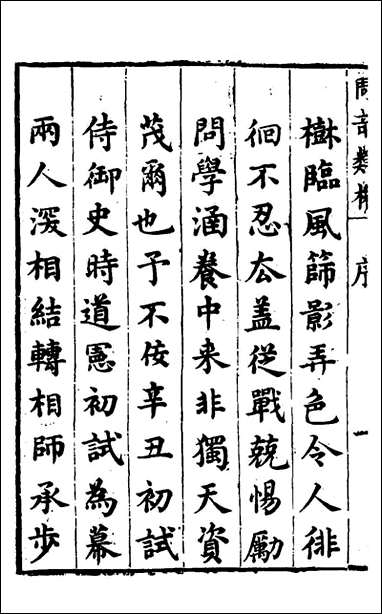 樹臨風篩影弄色令人徘
徊不忍厺蓋従戰兢惕厲
問學涵養中来非獨天資
茂爾也予不佞辛丑初試
侍御史時道憲初試為幕
兩人深相結轉相師承步
序
一